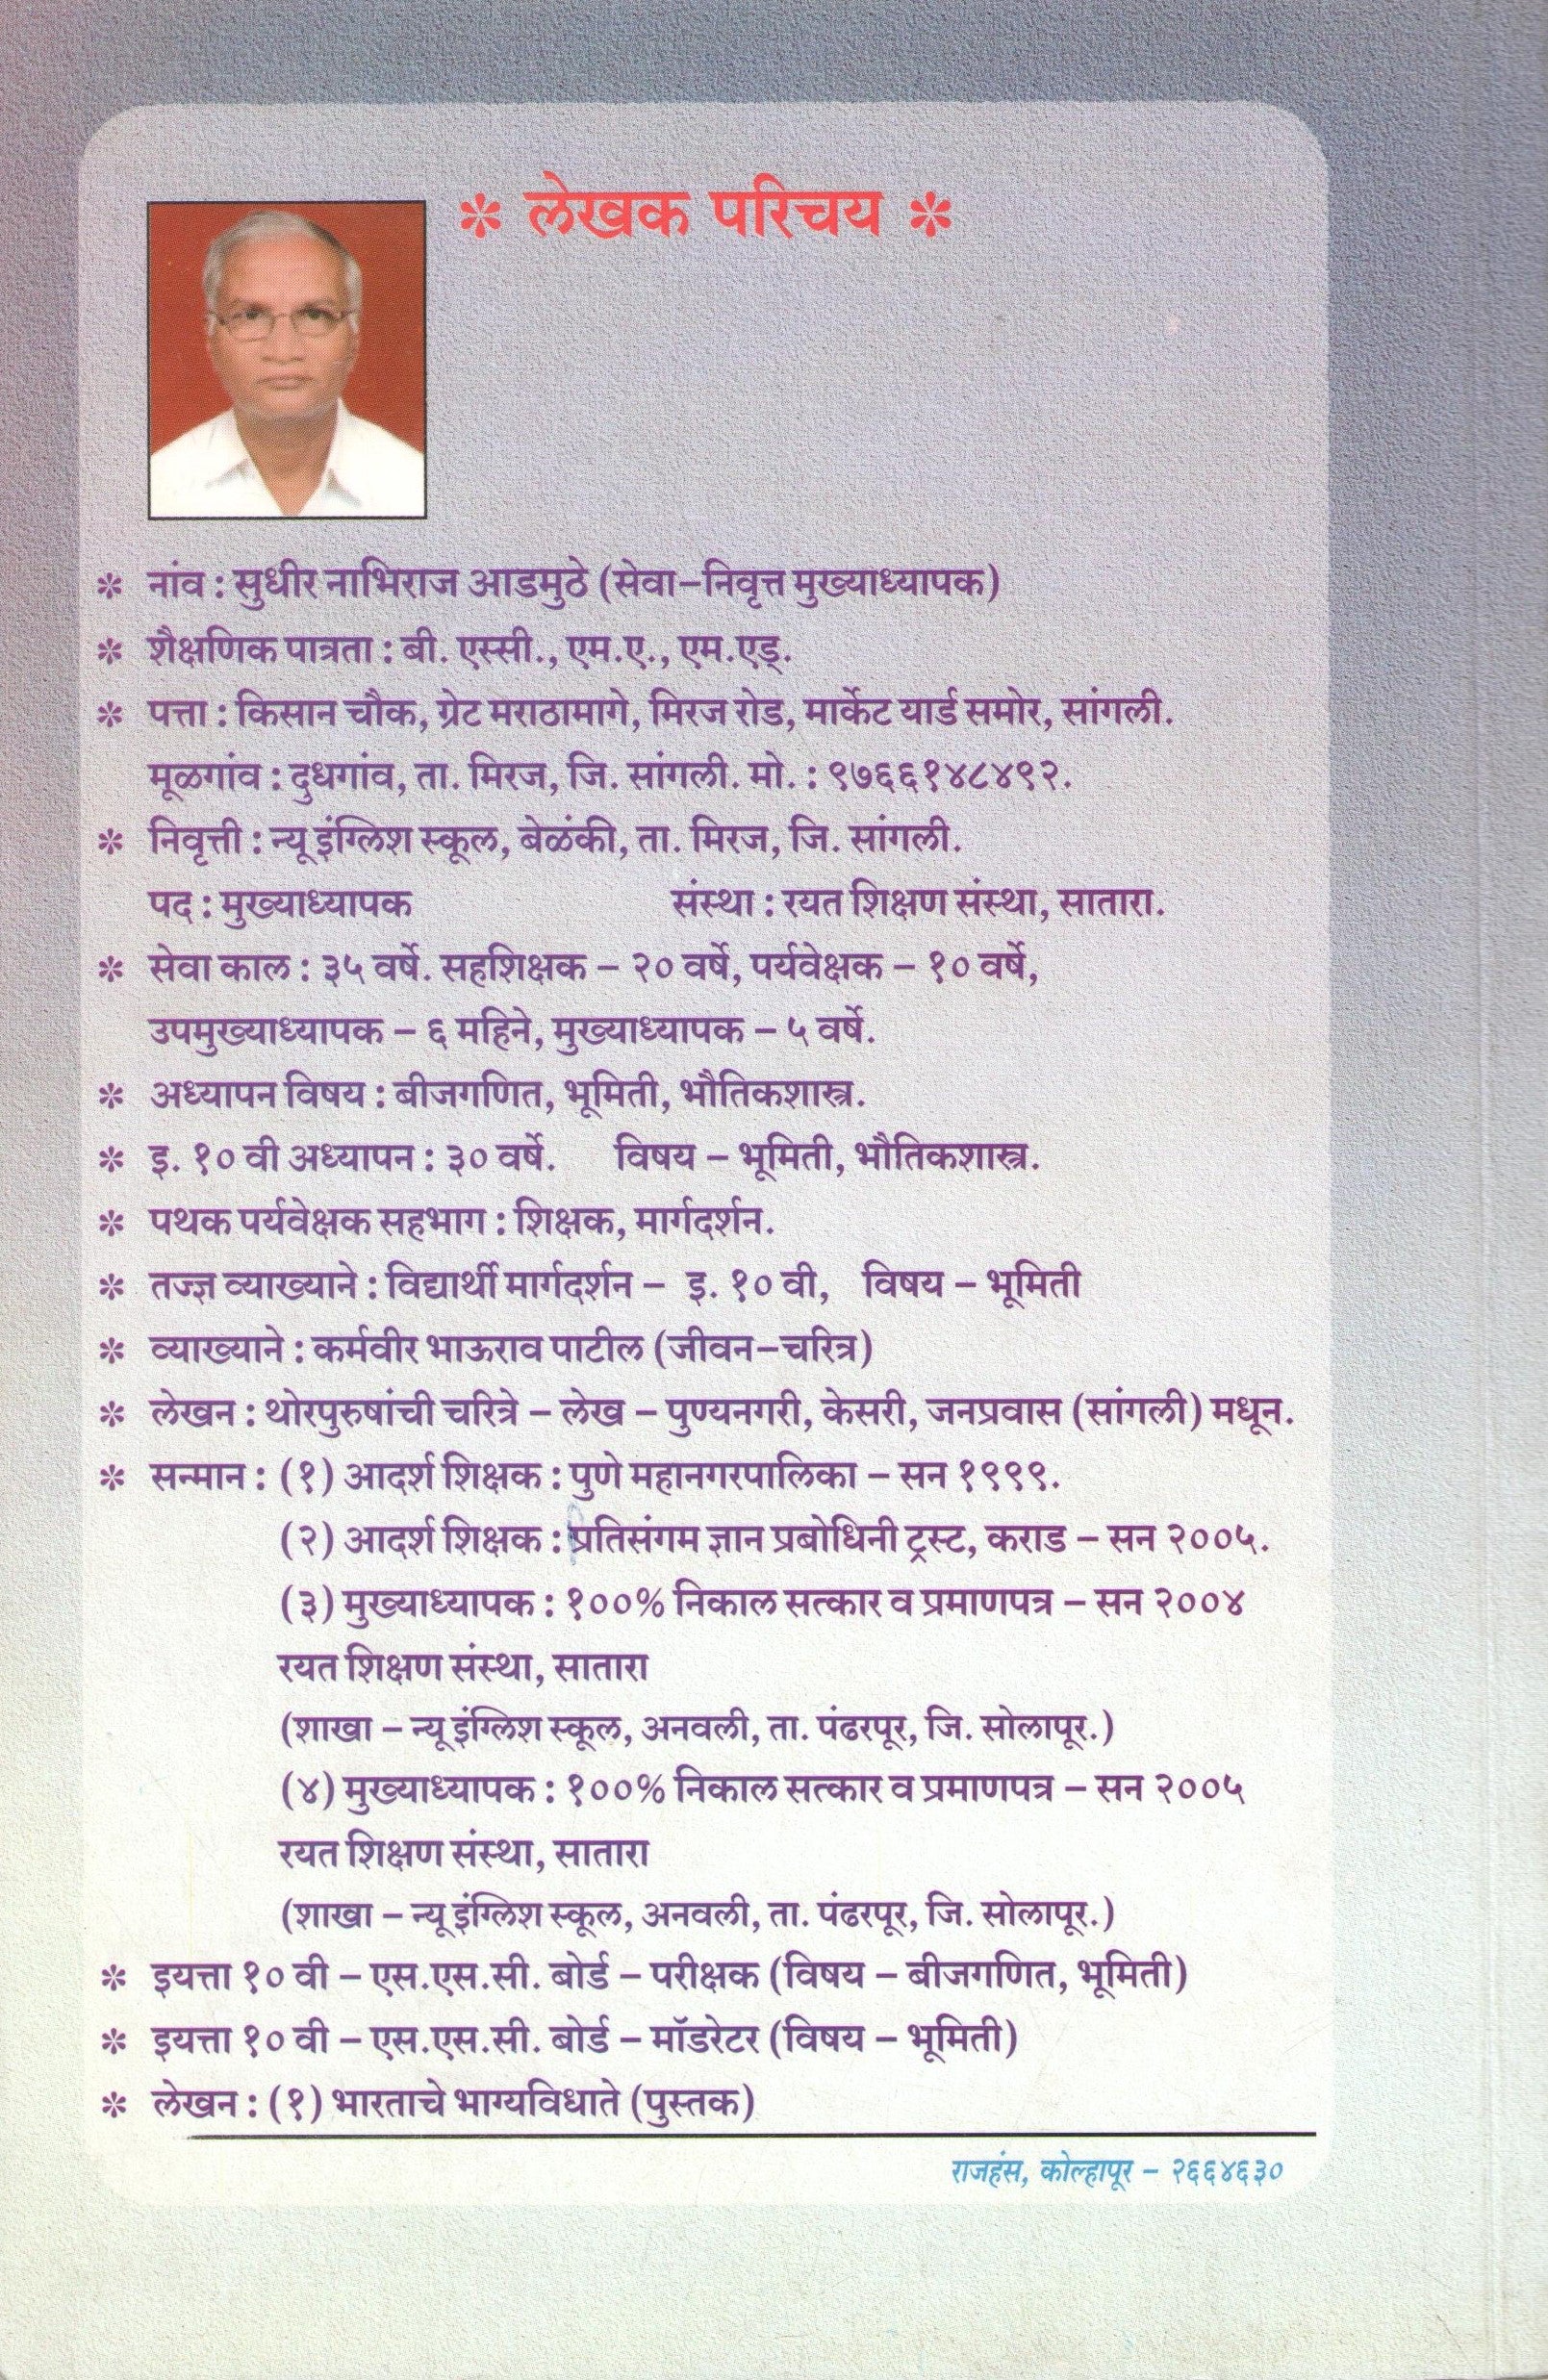 * लेखक परिचय *
* नांव : सुधीर नाभिराज आडमुठे (सेवा-निवृत्त मुख्याध्यापक)
* शैक्षणिक पात्रता : बी. एस्सी., एम.ए., एम.एड्.
* पत्ता : किसान चौक, ग्रेट मराठामागे, मिरज रोड, मार्केट यार्ड समोर, सांगली.
मूळगांव : दुधगांव, ता. मिरज, जि. सांगली. मो. : ९७६६१४८४९२.
* निवृत्ती : न्यू इंग्लिश स्कूल, बेळंकी, ता. मिरज, जि. सांगली.
पद : मुख्याध्यापक संस्था : रयत शिक्षण संस्था, सातारा.
* सेवा काल : ३५ वर्षे. सहशिक्षक – २० वर्षे, पर्यवेक्षक – १० वर्षे,
उपमुख्याध्यापक – ६ महिने, मुख्याध्यापक – ५ वर्षे.
* अध्यापन विषय : बीजगणित, भूमिती, भौतिकशास्त्र.
* इ. १० वी अध्यापन : ३० वर्षे. विषय – भूमिती, भौतिकशास्त्र.
* पथक पर्यवेक्षक सहभाग : शिक्षक, मार्गदर्शन.
* तज्ज्ञ व्याख्याने : विद्यार्थी मार्गदर्शन – इ. १० वी, विषय – भूमिती
* व्याख्याने : कर्मवीर भाऊराव पाटील (जीवन-चरित्र)
* लेखन : थोरपुरुषांची चरित्रे – लेख – पुण्यनगरी, केसरी, जनप्रवास (सांगली) मधून.
* सन्मान : (१) आदर्श शिक्षक : पुणे महानगरपालिका – सन १९९९.
(२) आदर्श शिक्षक : प्रतिसंगम ज्ञान प्रबोधिनी ट्रस्ट, कराड – सन २००५.
(३) मुख्याध्यापक : १००% निकाल सत्कार व प्रमाणपत्र – सन २००४
रयत शिक्षण संस्था, सातारा
(शाखा – न्यू इंग्लिश स्कूल, अनवली, ता. पंढरपूर, जि. सोलापूर.)
(४) मुख्याध्यापक : १००% निकाल सत्कार व प्रमाणपत्र – सन २००५
रयत शिक्षण संस्था, सातारा
(शाखा – न्यू इंग्लिश स्कूल, अनवली, ता. पंढरपूर, जि. सोलापूर.)
* इयत्ता १० वी – एस.एस.सी. बोर्ड – परीक्षक (विषय – बीजगणित, भूमिती)
* इयत्ता १० वी – एस.एस.सी. बोर्ड – मॉडरेटर (विषय – भूमिती)
* लेखन : (१) भारताचे भाग्यविधाते (पुस्तक)
राजहंस, कोल्हापूर – २६६४६३०